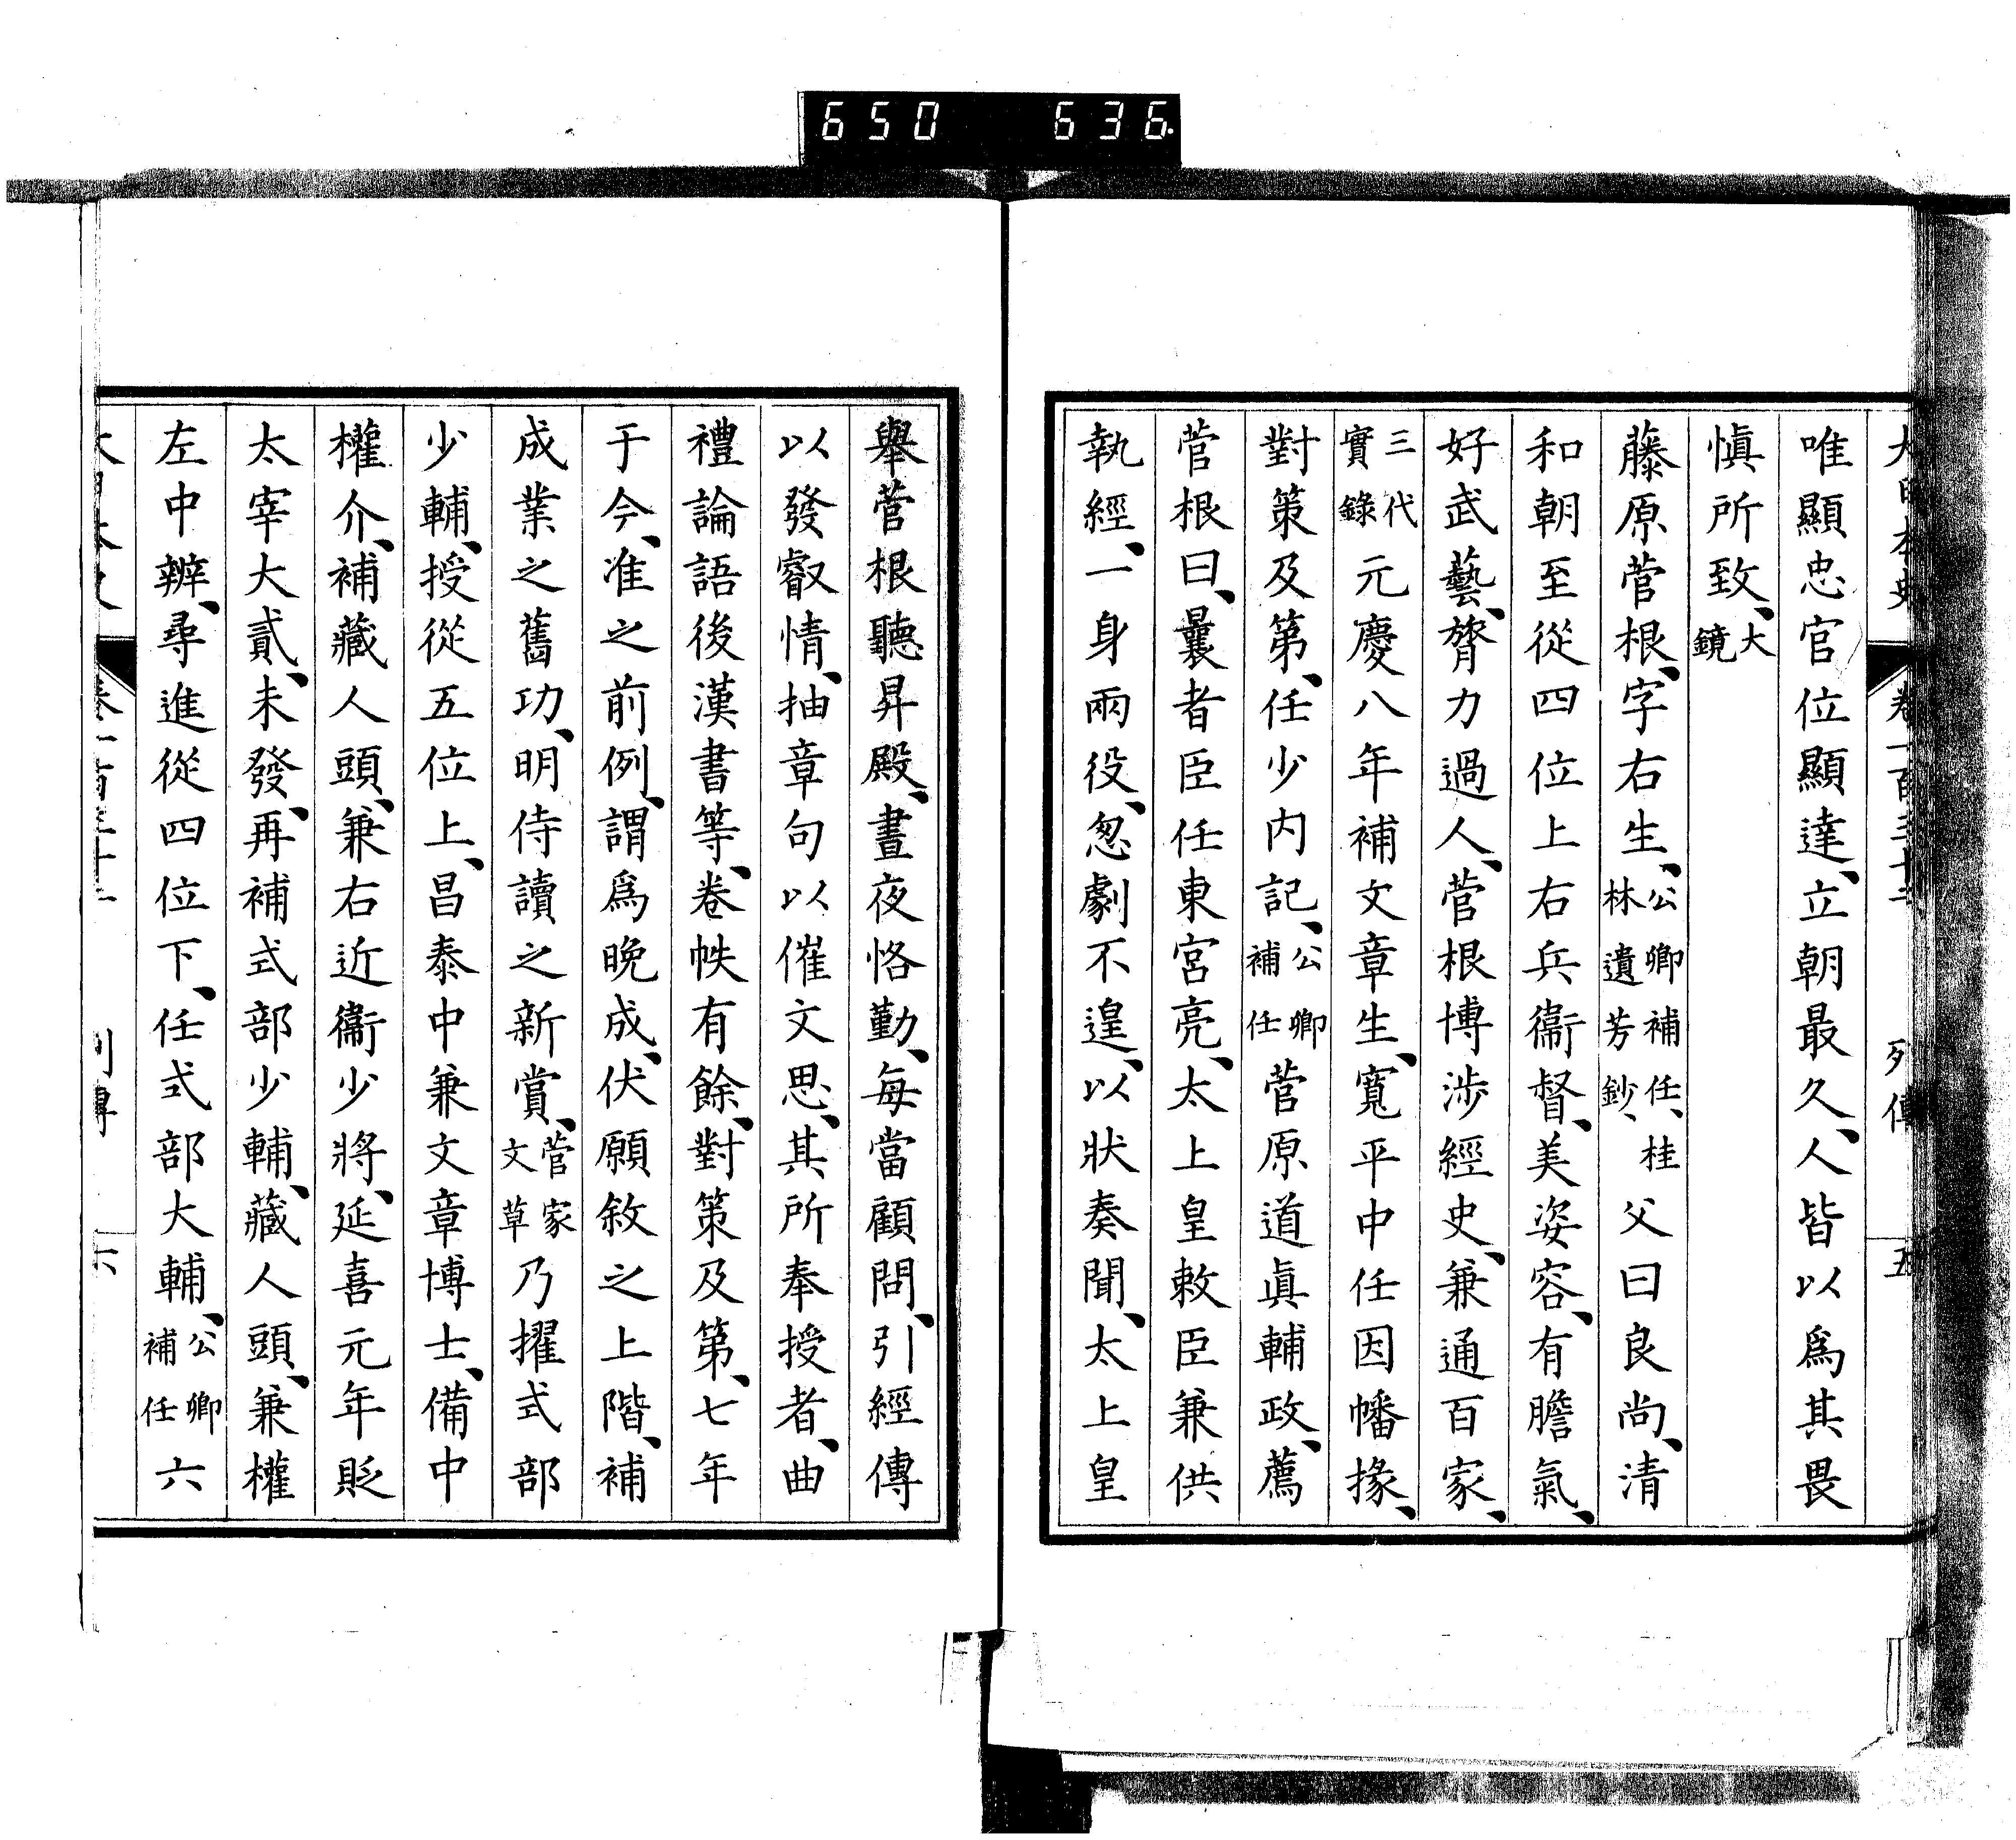 650 636.
大日本史 卷一百三十二 列傳 五
唯顯忠官位顯達、立朝最久、人皆以爲其畏
愼所致、大鏡
藤原菅根、字右生、公卿補任、桂林遺芳鈔、父曰良尚、清
和朝至從四位上右兵衞督、美姿容、有膽氣、
好武藝、膂力過人、菅根博渉經史、兼通百家、
三代實錄元慶八年補文章生、寬平中任因幡掾、
對策及第、任少内記、公卿補任菅原道眞輔政、薦
菅根曰、曩者臣任東宮亮、太上皇敕臣兼供
執經、一身兩役、怱劇不遑、以狀奏聞、太上皇
舉菅根聽昇殿、晝夜恪勤、每當顧問、引經傳
以發叡情、抽章句以催文思、其所奉授者、曲
禮論語後漢書等、卷帙有餘、對策及第、七年
于今、准之前例、謂爲晚成、伏願敘之上階、補
成業之舊功、明侍讀之新賞、菅家文草乃擢式部
少輔、授從五位上、昌泰中兼文章博士、備中
權介、補藏人頭、兼右近衞少將、延喜元年貶
太宰大貳、未發、再補式部少輔、藏人頭、兼權
左中辨、尋進從四位下、任式部大輔、公卿補任六